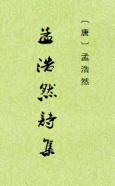 〔唐〕孟浩然
孟浩然詩集